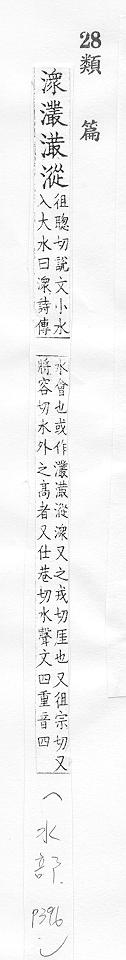 28類 篇
潨灇漎漎
徂聰切說文小水
入大水曰潨詩傳
水會也或作灇漎潨又之戎切厓也又徂宗切又
將容切水外之高者又仕巷切水聲文四重音四
(水部.
P396
)